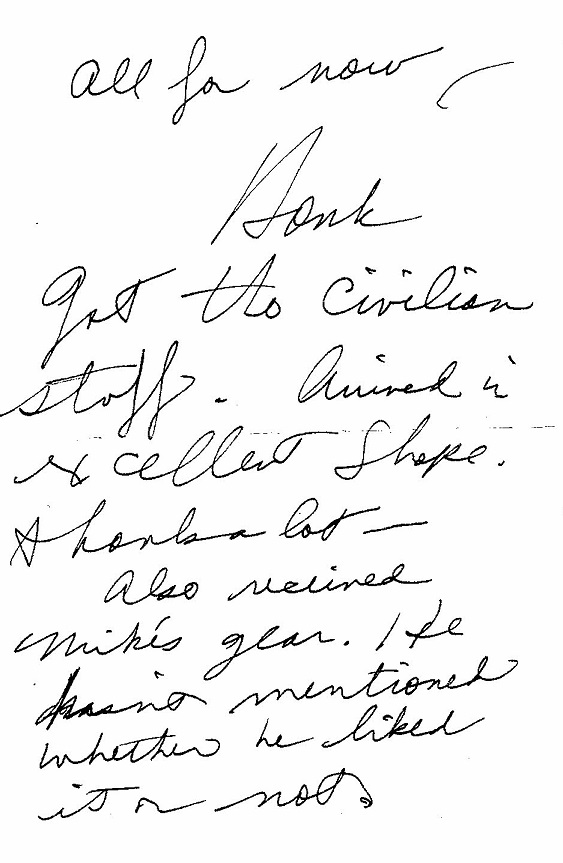 All for now,
Hank
Got the civilian
stuff. Arrived in
excellent shape.
thanks a lot —
Also received
Mike's gear. He
hasn't mentioned
whether he liked
it or not.